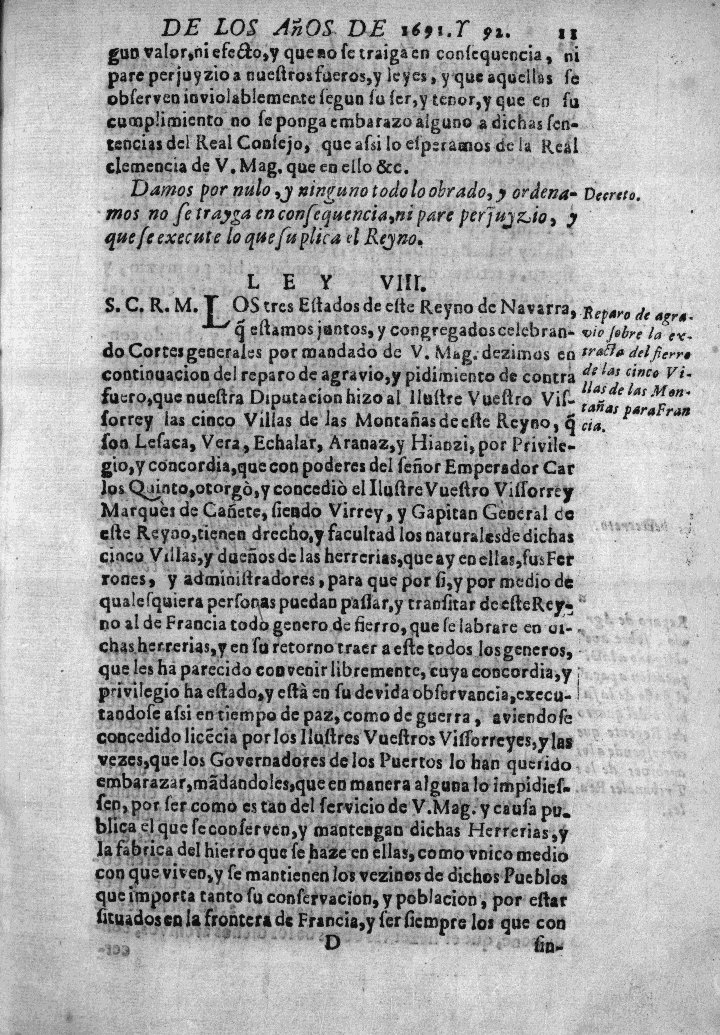 DE LOS AñOS DE 1691. Y 92. 11
gun valor, ni efecto, y que no se traiga en consequencia, ni
pare perjuyzio a nuestros fueros, y leyes, y que aquellas se
observen inviolablemente segun su ser, y tenor, y que en su
cumplimiento no se ponga embarazo alguno a dichas sen-
tencias del Real Consejo, que assi lo esperamos de la Real
clemencia de V. Mag. que en ello &c.
Damos por nulo, y ninguno todo lo obrado, y ordena-
mos no se trayga en consequencia, ni pare perjuyzio, y
que se execute lo que suplica el Reyno.
Decreto.
LEY VIII.
S. C. R. M. LOS tres Estados de este Reyno de Navarra,
q̃ estamos juntos, y congregados celebran-
do Cortes generales por mandado de V. Mag. dezimos en
continuacion del reparo de agravio, y pidimiento de contra
fuero, que nuestra Diputacion hizo al Ilustre Vuestro Vis-
sorrey las cinco Villas de las Montañas de este Reyno, q̃
son Lesaca, Vera, Echalar, Aranaz, y Hianzi, por Privile-
gio, y concordia, que con poderes del señor Emperador Car
los Quinto, otorgò, y concediò el Ilustre Vuestro Vissorrey
Marques de Cañete, siendo Virrey, y Gapitan General de
este Reyno, tienen drecho, y facultad los naturales de dichas
cinco Villas, y dueños de las herrerias, que ay en ellas, sus Fer
rones, y administradores, para que por si, y por medio de
qualesquiera personas puedan passar, y transitar de este Rey-
no al de Francia todo genero de fierro, que se labrare en di-
chas herrerias, y en su retorno traer a este todos los generos,
que les ha parecido convenir libremente, cuya concordia, y
privilegio ha estado, y està en su devida observancia, execu-
tandose assi en tiempo de paz, como de guerra, aviendose
concedido licẽcia por los Ilustres Vuestros Vissorreyes, y las
vezes, que los Governadores de los Puertos lo han querido
embarazar, mãdandoles, que en manera alguna lo impidies-
sen, por ser como es tan del servicio de V. Mag. y causa pu-
blica el que se conserven, y mantengan dichas Herrerias, y
la fabrica del hierro que se haze en ellas, como vnico medio
con que viven, y se mantienen los vezinos de dichos Pueblos
que importa tanto su conservacion, y poblacion, por estar
situados en la frontera de Francia, y ser siempre los que con
D sin-
Reparo de agra-
vio sobre la ex-
tracta del fierro
de las cinco Vi-
llas de las Mon-
tañas para Fran
cia.